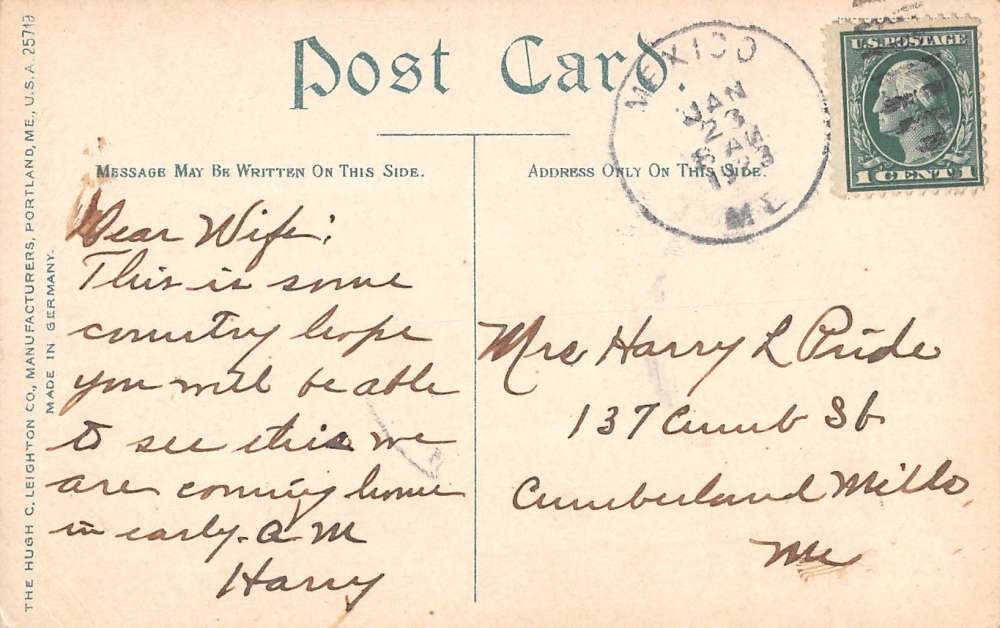 Post Card.
MESSAGE MAY BE WRITTEN ON THIS SIDE.
ADDRESS ONLY ON THIS SIDE.
MEXICO
JAN
23
8 AM
1923
ME
U.S. POSTAGE
1 CENT 1
THE HUGH C. LEIGHTON CO., MANUFACTURERS, PORTLAND, ME., U.S.A. 25719
MADE IN GERMANY.
Dear Wife:
This is some
country hope
you will be able
to see this we
are coming home
in early. a m
Harry
Mrs Harry L Pride
137 Cumb St
Cumberland Mills,
Me